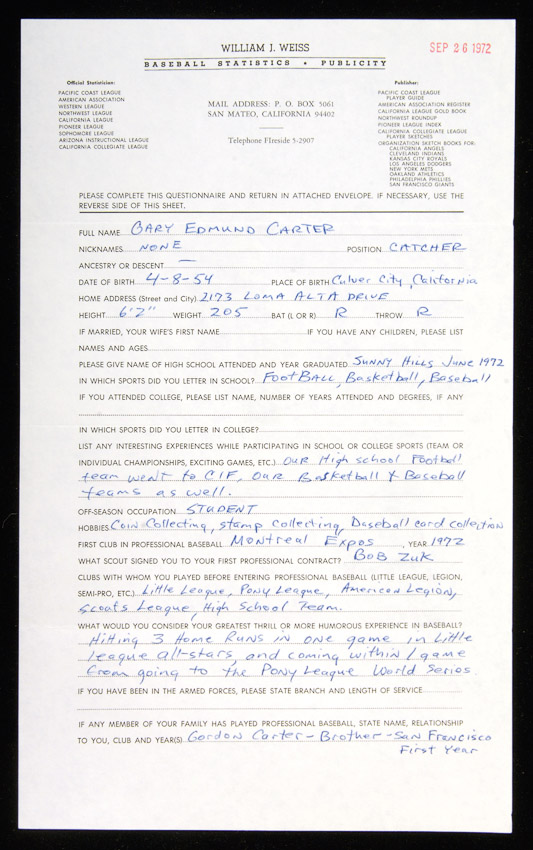 WILLIAM J. WEISS
BASEBALL STATISTICS • PUBLICITY
SEP 26 1972
Official Statistician:
PACIFIC COAST LEAGUE
AMERICAN ASSOCIATION
WESTERN LEAGUE
NORTHWEST LEAGUE
CALIFORNIA LEAGUE
PIONEER LEAGUE
SOPHOMORE LEAGUE
ARIZONA INSTRUCTIONAL LEAGUE
CALIFORNIA COLLEGIATE LEAGUE
MAIL ADDRESS: P. O. BOX 5061
SAN MATEO, CALIFORNIA 94402
Telephone FIreside 5-2907
Publisher:
PACIFIC COAST LEAGUE
PLAYER GUIDE
AMERICAN ASSOCIATION REGISTER
CALIFORNIA LEAGUE GOLD BOOK
NORTHWEST ROUNDUP
PIONEER LEAGUE INDEX
CALIFORNIA COLLEGIATE LEAGUE
PLAYER SKETCHES
ORGANIZATION SKETCH BOOKS FOR:
CALIFORNIA ANGELS
CLEVELAND INDIANS
KANSAS CITY ROYALS
LOS ANGELES DODGERS
NEW YORK METS
OAKLAND ATHLETICS
PHILADELPHIA PHILLIES
SAN FRANCISCO GIANTS
PLEASE COMPLETE THIS QUESTIONNAIRE AND RETURN IN ATTACHED ENVELOPE. IF NECESSARY, USE THE
REVERSE SIDE OF THIS SHEET.
FULL NAME GARY EDMUND CARTER
NICKNAMES NONE POSITION CATCHER
ANCESTRY OR DESCENT —
DATE OF BIRTH 4-8-54 PLACE OF BIRTH Culver City, California
HOME ADDRESS (Street and City) 2173 LOMA ALTA DRIVE
HEIGHT 6'2" WEIGHT 205 BAT (L OR R) R THROW R
IF MARRIED, YOUR WIFE'S FIRST NAME IF YOU HAVE ANY CHILDREN, PLEASE LIST
NAMES AND AGES
PLEASE GIVE NAME OF HIGH SCHOOL ATTENDED AND YEAR GRADUATED SUNNY HILLS JUNE 1972
IN WHICH SPORTS DID YOU LETTER IN SCHOOL? FootBALL, Basketball, Baseball
IF YOU ATTENDED COLLEGE, PLEASE LIST NAME, NUMBER OF YEARS ATTENDED AND DEGREES, IF ANY
IN WHICH SPORTS DID YOU LETTER IN COLLEGE?
LIST ANY INTERESTING EXPERIENCES WHILE PARTICIPATING IN SCHOOL OR COLLEGE SPORTS (TEAM OR
INDIVIDUAL CHAMPIONSHIPS, EXCITING GAMES, ETC.) OUR High school Football
team went to CIF, OUR Basketball & Baseball
teams as well.
OFF-SEASON OCCUPATION STUDENT
HOBBIES Coin Collecting, stamp collecting, Baseball card collection
FIRST CLUB IN PROFESSIONAL BASEBALL Montreal Expos, YEAR 1972
WHAT SCOUT SIGNED YOU TO YOUR FIRST PROFESSIONAL CONTRACT? BOB ZUK
CLUBS WITH WHOM YOU PLAYED BEFORE ENTERING PROFESSIONAL BASEBALL (LITTLE LEAGUE, LEGION,
SEMI-PRO, ETC.) Little League, Pony League, American Legion,
scouts League, High School Team.
WHAT WOULD YOU CONSIDER YOUR GREATEST THRILL OR MORE HUMOROUS EXPERIENCE IN BASEBALL?
Hitting 3 Home Runs in one game in Little
league all-stars, and coming within 1 game
from going to the Pony League World Series.
IF YOU HAVE BEEN IN THE ARMED FORCES, PLEASE STATE BRANCH AND LENGTH OF SERVICE
IF ANY MEMBER OF YOUR FAMILY HAS PLAYED PROFESSIONAL BASEBALL, STATE NAME, RELATIONSHIP
TO YOU, CLUB AND YEAR(S) Gordon Carter - Brother - San Francisco
First Year